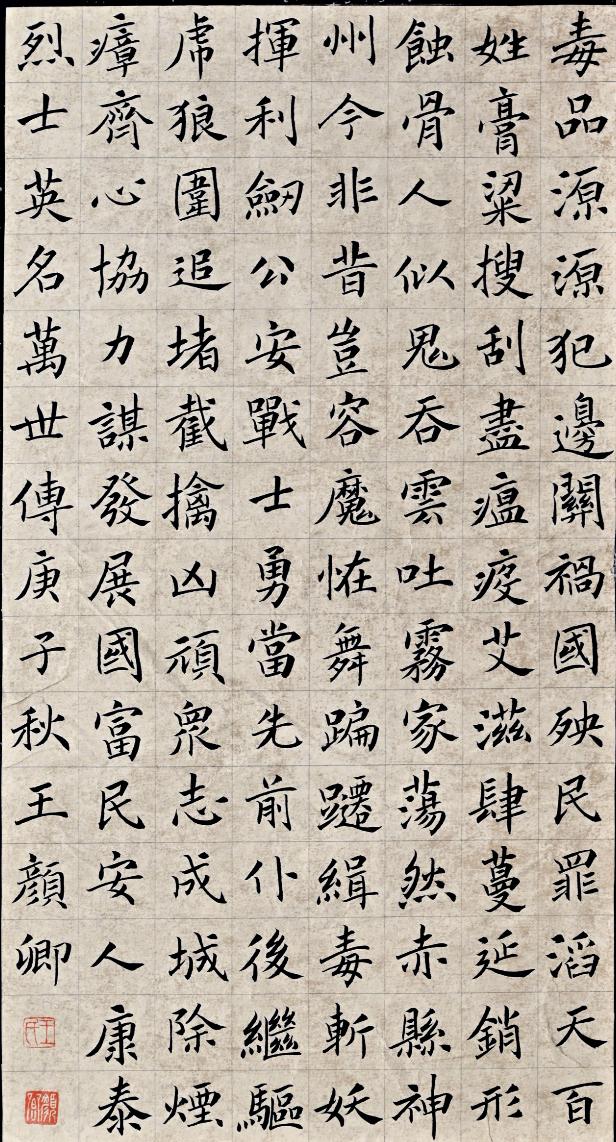 毒品源源犯邊關禍國殃民罪滔天百
姓膏粱搜刮盡瘟疫艾滋肆蔓延銷形
蝕骨人似鬼吞雲吐霧家蕩然赤縣神
州今非昔豈容魔恠舞蹁躚緝毒斬妖
揮利劒公安戰士勇當先前仆後繼驅
虎狼圍追堵截擒凶頑衆志成城除煙
瘴齊心協力謀發展國富民安人康泰
烈士英名萬世傳庚子秋王顔卿